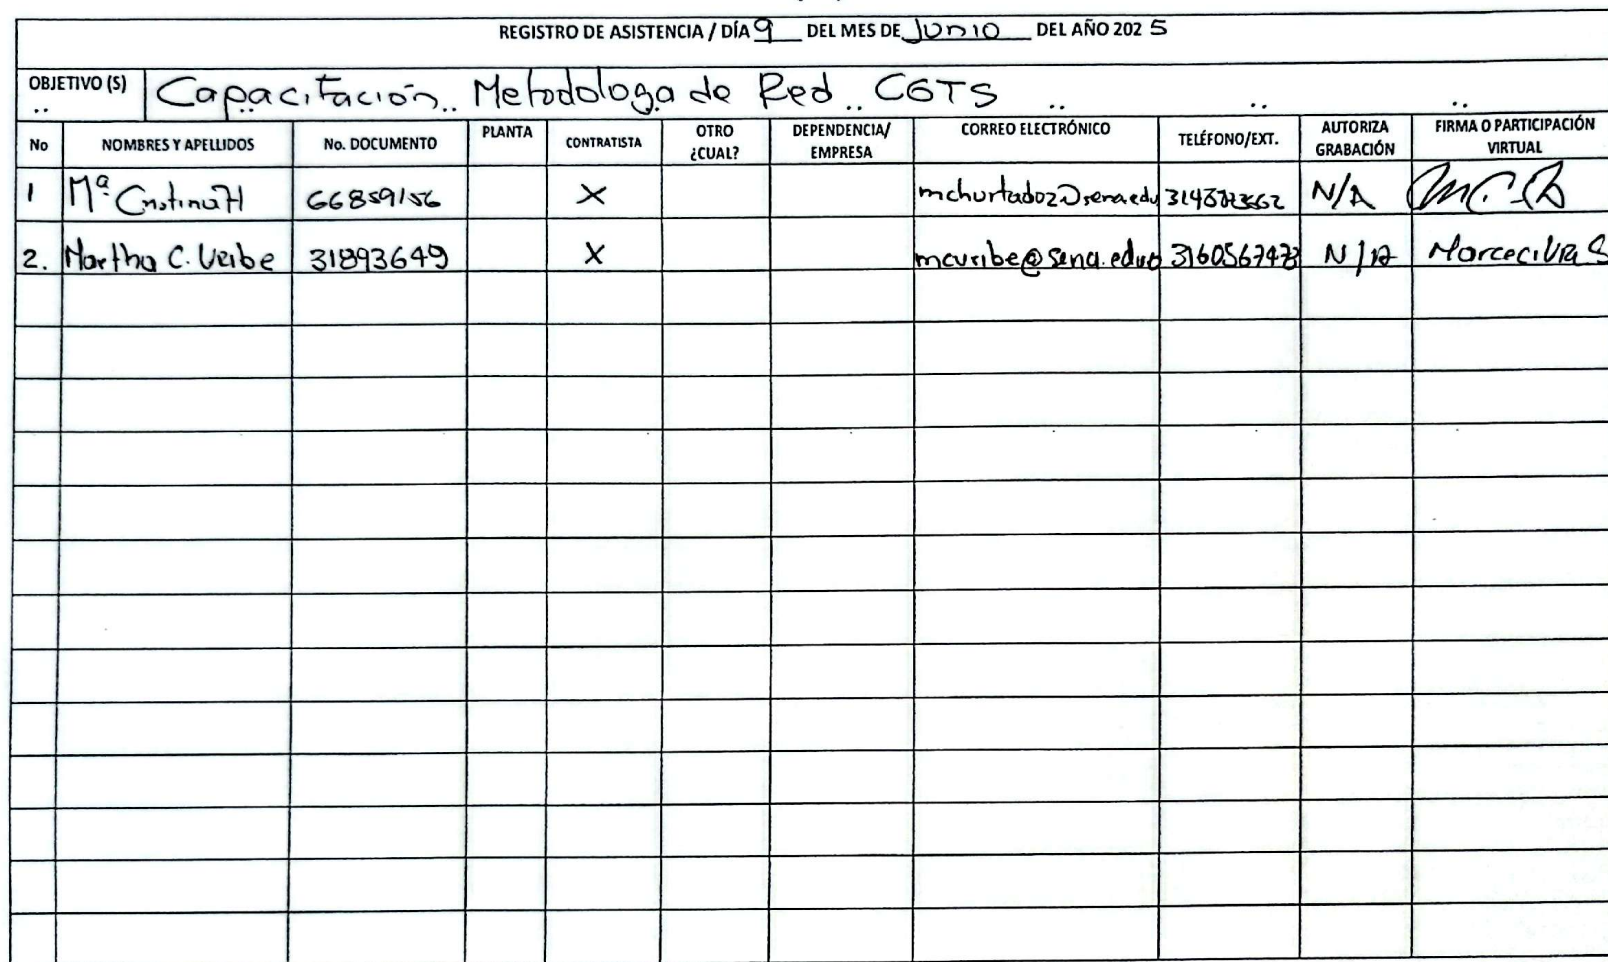 REGISTRO DE ASISTENCIA / DÍA 9 DEL MES DE Junio DEL AÑO 2025
OBJETIVO (S) Capacitación Metodologa de Red CGTS
No NOMBRES Y APELLIDOS No. DOCUMENTO PLANTA CONTRATISTA OTRO ¿CUAL? DEPENDENCIA/ EMPRESA CORREO ELECTRÓNICO TELÉFONO/EXT. AUTORIZA GRABACIÓN FIRMA O PARTICIPACIÓN VIRTUAL
1 Mª Cristina H 66859156 X N/A
2. Martha C. Uribe 31893649 X N/A